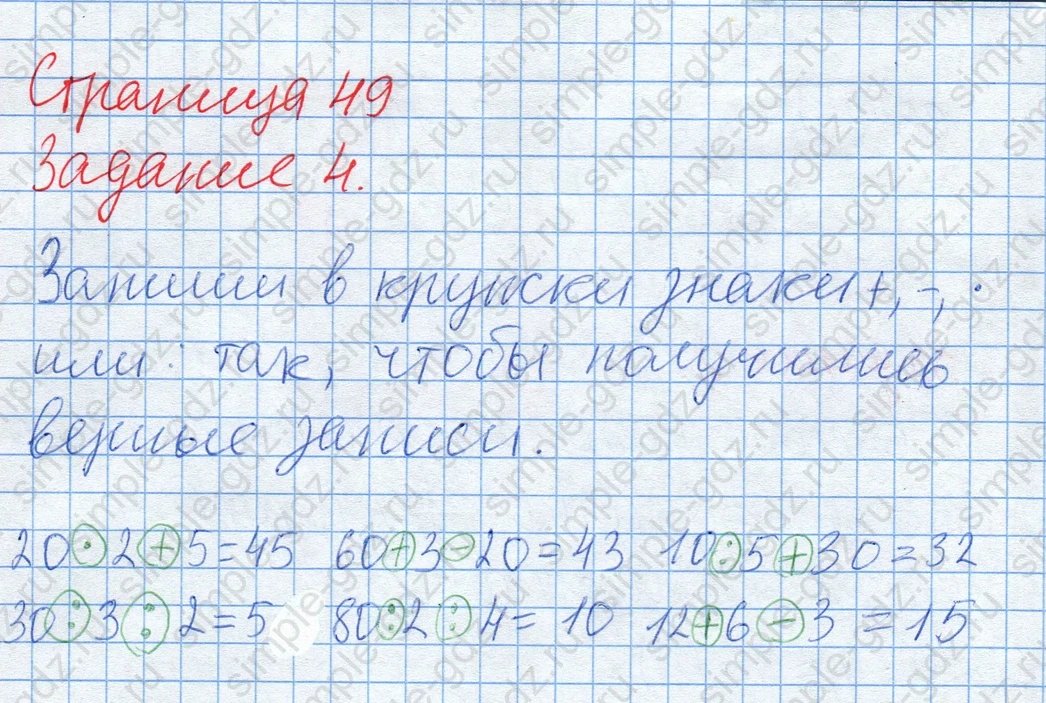 Страница 49
Задание 4.
Запиши в кружки знаки +, -, ·
или : так, чтобы получились
верные записи.
20 · 2 + 5 = 45 60 + 3 - 20 = 43 10 : 5 + 30 = 32
30 : 3 : 2 = 5 80 : 2 : 4 = 10 12 + 6 - 3 = 15
simple-gdz.ru